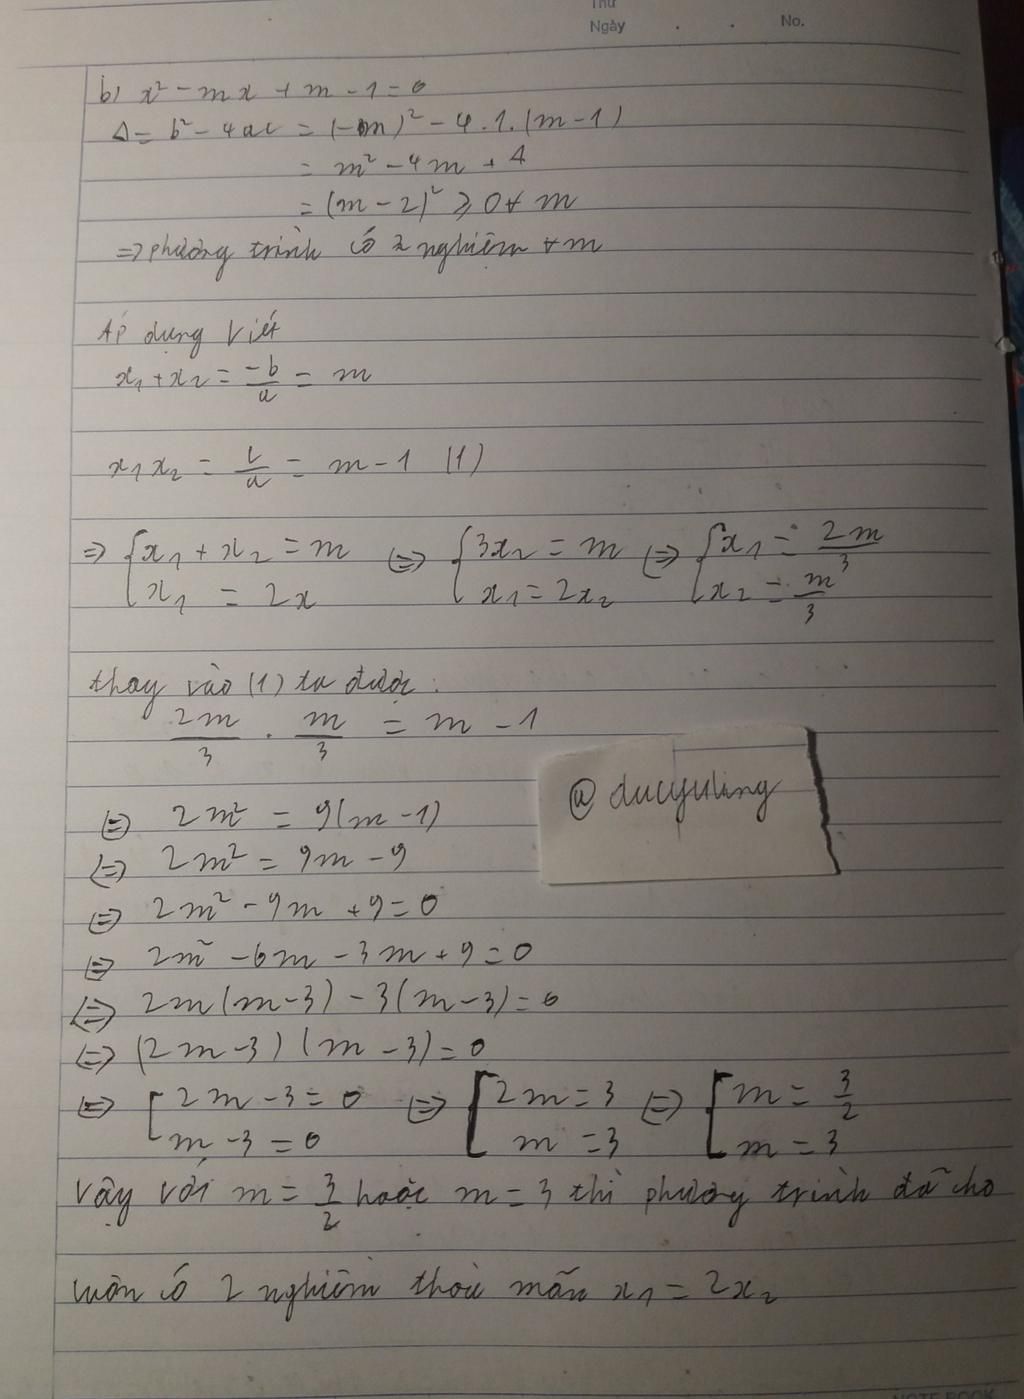 Thứ
Ngày . . No.
b) x² - mx + m - 1 = 0
Δ = b² - 4ac = (-m)² - 4.1.(m-1)
= m² - 4m + 4
= (m-2)² ≥ 0 ∀ m
=> phương trình có 2 nghiệm ∀m
Áp dụng Viét
x₁ + x₂ = -b/a = m
x₁x₂ = c/a = m - 1 (1)
=> { x₁ + x₂ = m <=> { 3x₂ = m <=> { x₁ = 2m/3
x₁ = 2x x₁ = 2x₂ x₂ = m/3
thay vào (1) ta được:
2m/3 . m/3 = m - 1
@ducyuling
<=> 2m² = 9(m-1)
<=> 2m² = 9m - 9
<=> 2m² - 9m + 9 = 0
<=> 2m² - 6m - 3m + 9 = 0
<=> 2m(m-3) - 3(m-3) = 0
<=> (2m-3)(m-3) = 0
<=> [ 2m - 3 = 0 <=> [ 2m = 3 <=> [ m = 3/2
m - 3 = 0 m = 3 m = 3
Vậy với m = 3/2 hoặc m = 3 thì phương trình đã cho
luôn có 2 nghiệm thoả mãn x₁ = 2x₂
NOTE BOOK